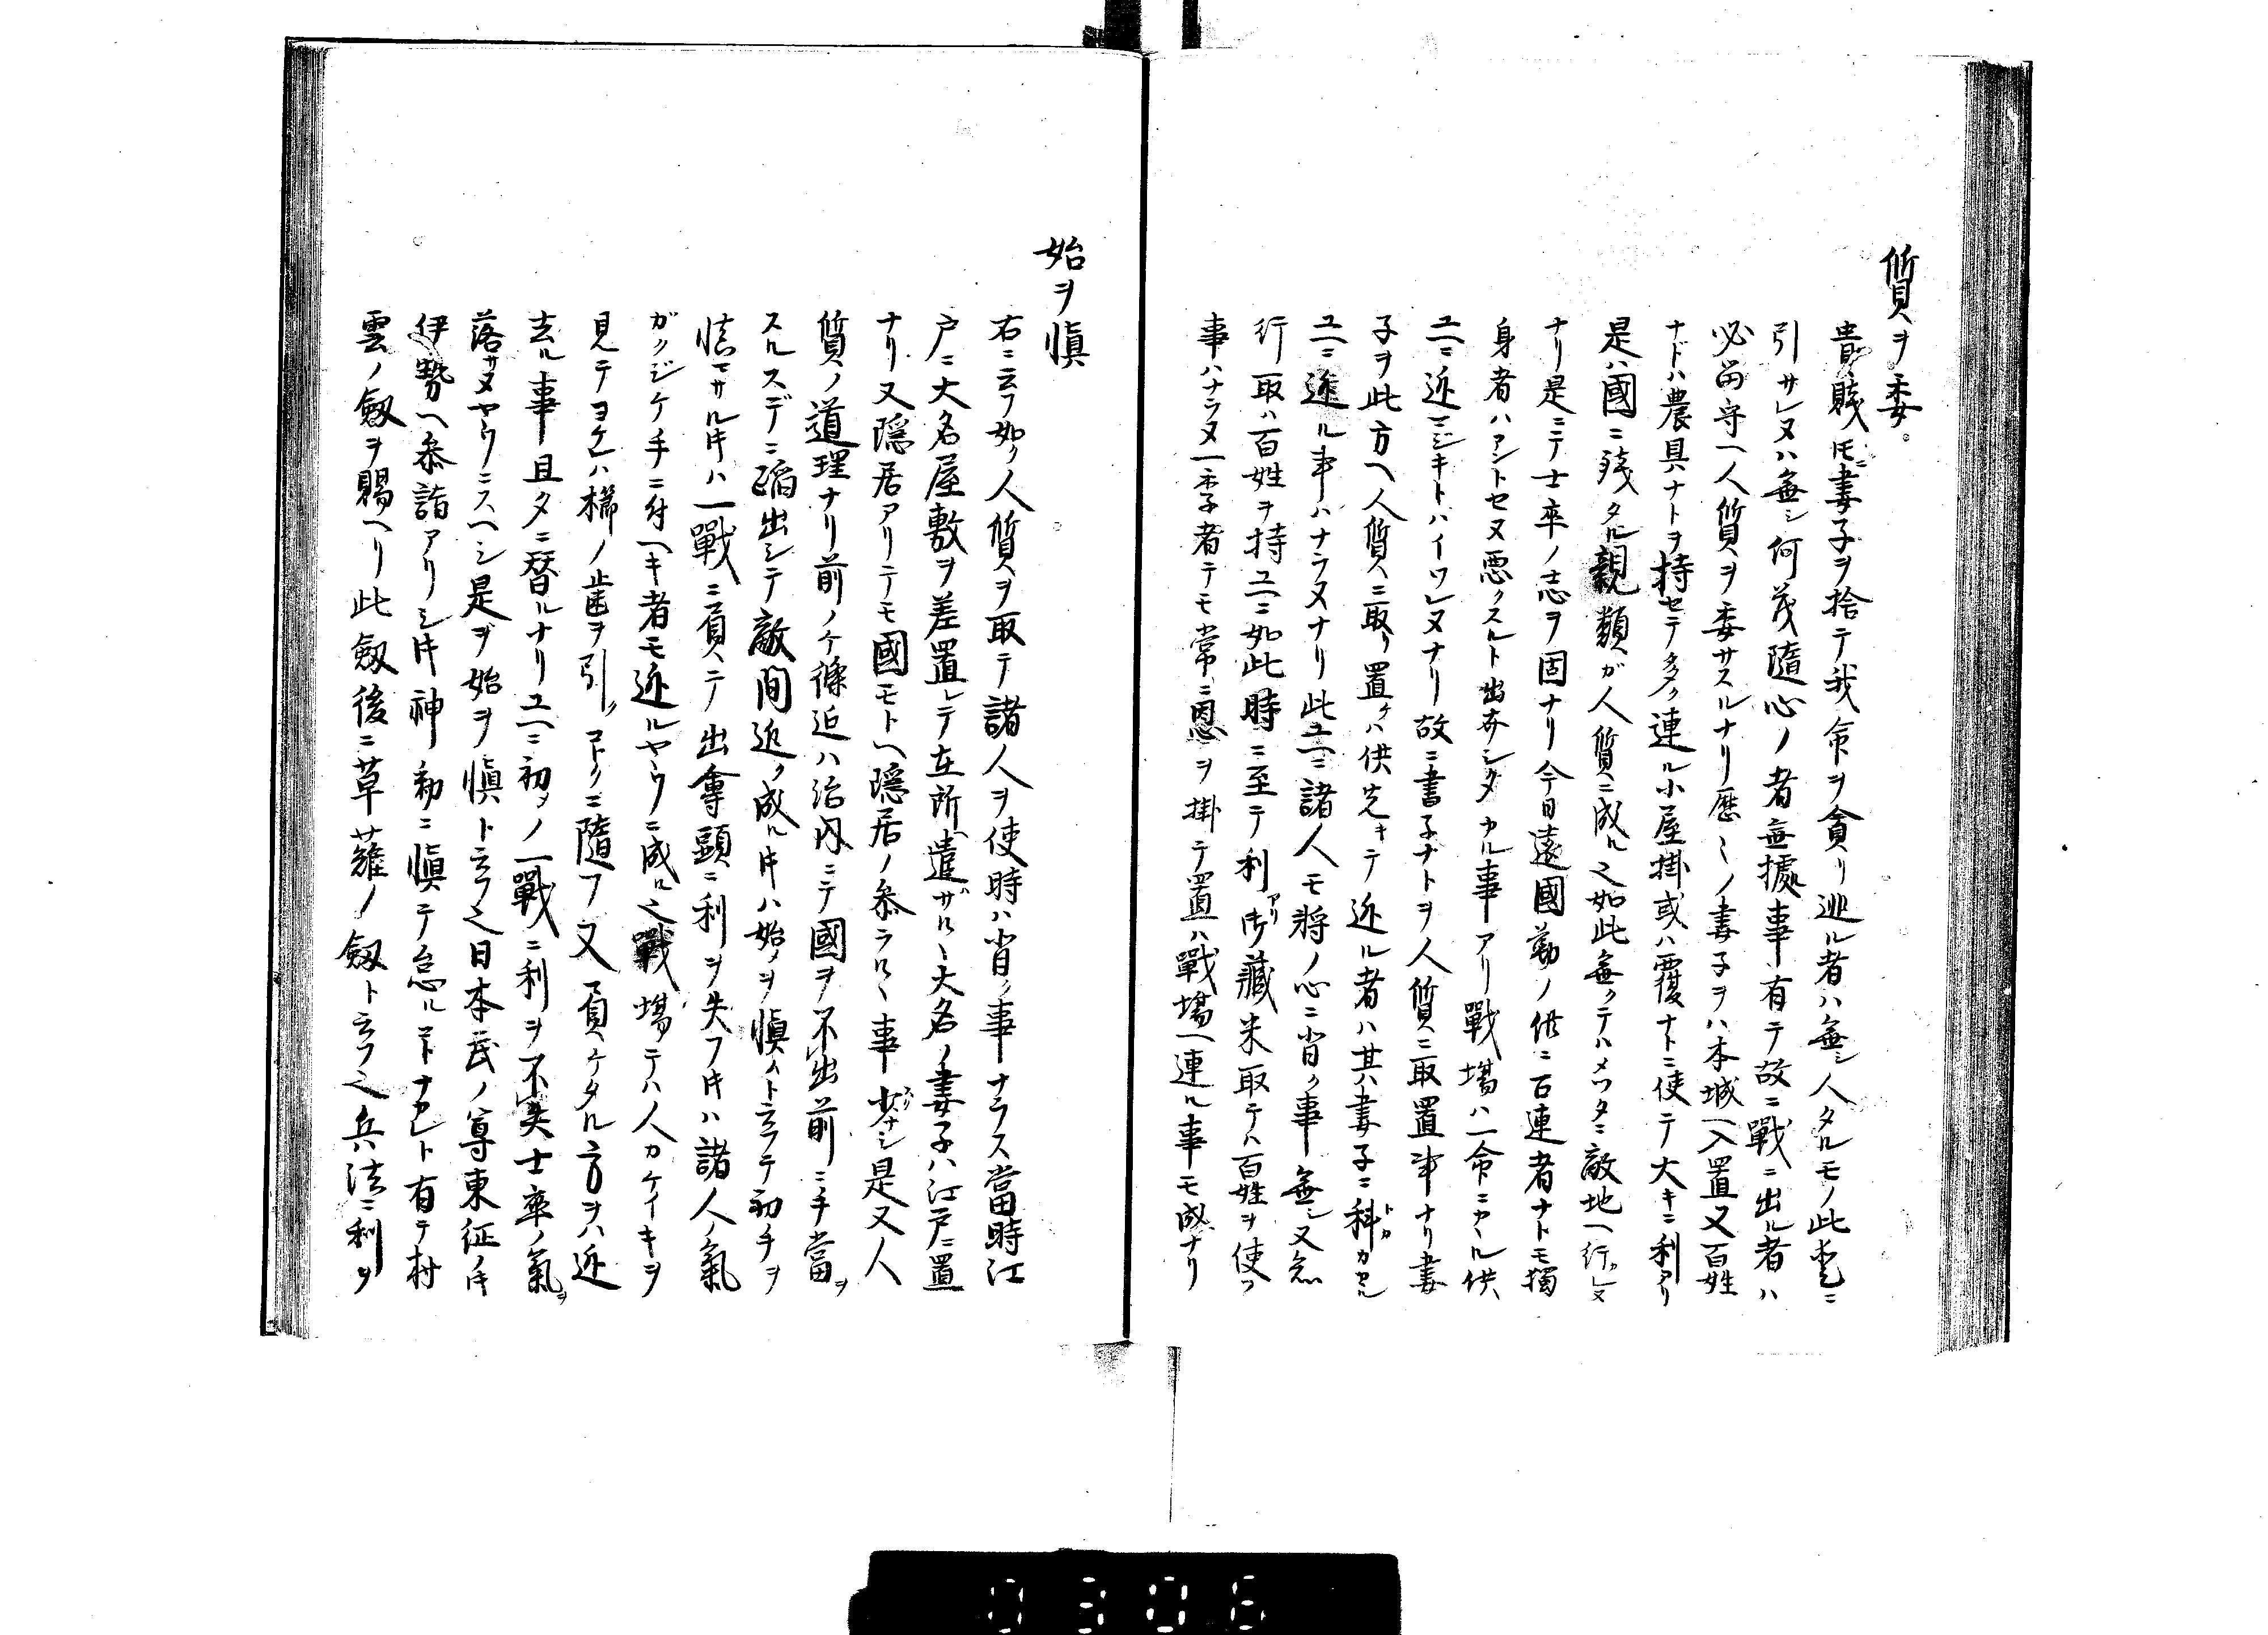 質ヲ委
貴賤𪜈ニ妻子ヲ捨テ我命ヲ貪リ逃ル者ハ無シ人タルモノ此売ニ
引サレヌハ無シ何茂随心ノ者無據事有テ故ニ戰ニ出ル者ハ
必留守ヘ人質ヲ委サスルナリ歴〻ノ妻子ヲハ本城ヘ入置又百姓
ナドハ農具ナトヲ持セテ多ク連ル小屋掛或ハ覆ナトニ使テ大キニ利アリ
是ハ國ニ残タル親類ガ人質ニ成ル之如此無クテハメツタニ敵地ヘ行レヌ
ナリ是ニテ士卒ノ志ヲ固ナリ今日遠國勤ノ供ニ召連者ナトモ獨
身者ハアントセヌ悪クスルト出奔シタカル事アリ戰場ハ一命ニカヽル供
ユヘニ近マジキトハイワレヌナリ故ニ妻子ナトヲ人質ニ取置事ナリ妻
子ヲ此方ヘ人質ニ取リ置クハ供先キテ逃ル者ハ其妻子ニ科カヽル
ユヘニ逃ル事ハナラヌナリ此ユヘニ諸人モ将ノ心ニ背ク事無シ又急
行取ハ百姓ヲ持ユヘニ如此時ニ至テ利アリ御藏米取テハ百姓ヲ使フ
事ハナラヌ一季者テモ常ニ恩ヲ掛テ置ハ戰場ヘ連ル事モ成ナリ
始ヲ愼
右ニ云フ如ク人質ヲ取テ諸人ヲ使時ハ背ク事ナラス當時江
戸ニ大名屋敷ヲ差置レテ在所ヘ遣ザルハ大名ノ妻子ハ江戸ニ置
ナリ又隠居アリテモ國モトヘ隠居ノ参ラルヽ事少ナシ是又人
質ノ道理ナリ前ノケ條迠ハ治内ニテ國ヲ不出前ニ手當ヲ
スルスデニ蹈出シテ敵間近ク成ル時ハ始ヲ愼メト云フテ初手ヲ
愼マサル時ハ一戰ニ負ニテ出會頭ニ利ヲ失フ時ハ諸人ノ氣
ガクジケ手ニ付ヘキ者モ逃ルヤウニ成ル之戰場テハ人カケイキヲ
見テヨケレハ櫛ノ歯ヲ引クコトクニ隨フ又負ケタル方ヲハ逃
去ル事且夕ニ替ルナリユヘニ初メノ一戰ニ利ヲ不失士卒ノ氣ヲ
落サヌヤウニスヘシ是ヲ始ヲ愼ト云フ之日本武ノ尊東征ノ時
伊勢ヘ参詣アリシ時神勅ニ愼テ怠ルコトナカレト有テ村
雲ノ劔ヲ賜ヘリ此劔後ニ草薙ノ劔ト云フ之兵法ニ利ヲ